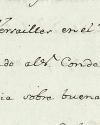 Versailles en el
do al Sr. Conde
ia sobre buena